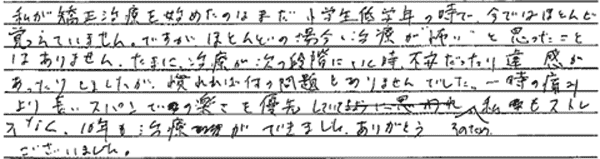 私が矯正治療を始めたのはまだ小学生低学年の時で、今ではほとんど
覚えていません。ですがほとんどの場合、治療が"怖い"と思ったこと
はありません。たまに、治療が次の段階にいく時、不安だったり違和感が
あったりしましたが、慣れれば何の問題もありませんでした。一時の痛み
より長いスパンでの楽さを優先して 私もストレ
スなく、10年も治療ができました。ありがとう そのため、
ございました。